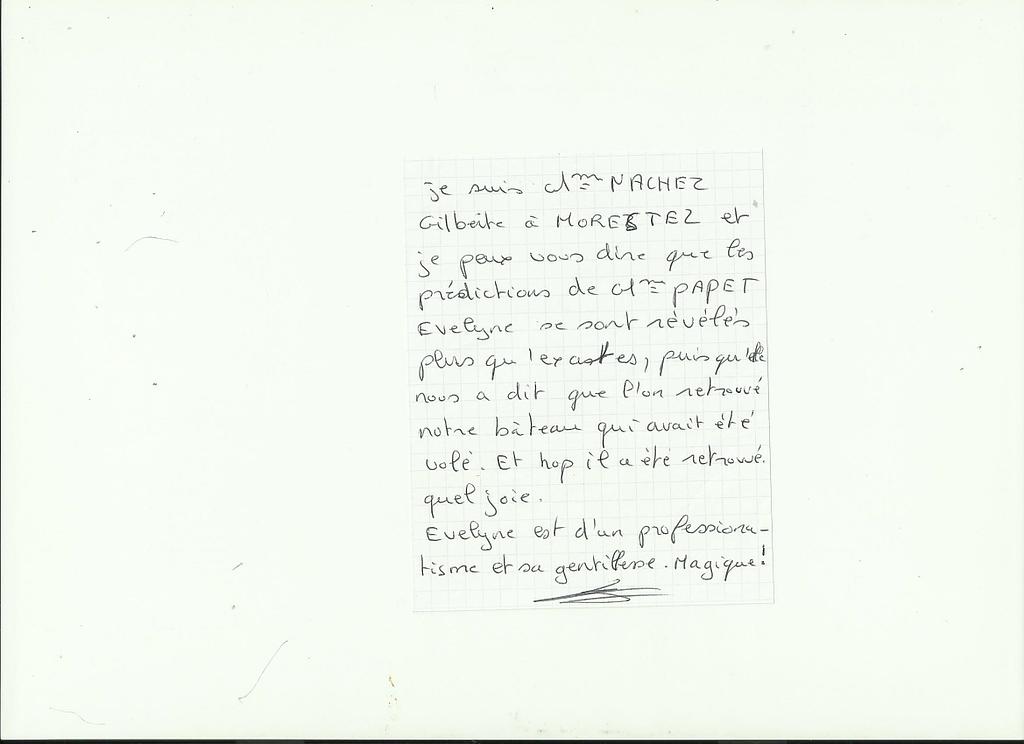 je suis Mme NACHEZ
Gilberte à MORESTEL et
je peux vous dire que les
prédictions de Mme PAPET
Evelyne se sont révélés
plus qu'exactes, puisqu'elle
nous a dit que l'on retrouvé
notre bâteau qui avait été
volé. Et hop il a été retrouvé.
quel joie.
Evelyne est d'un professiona-
lisme et sa gentillesse. Magique!